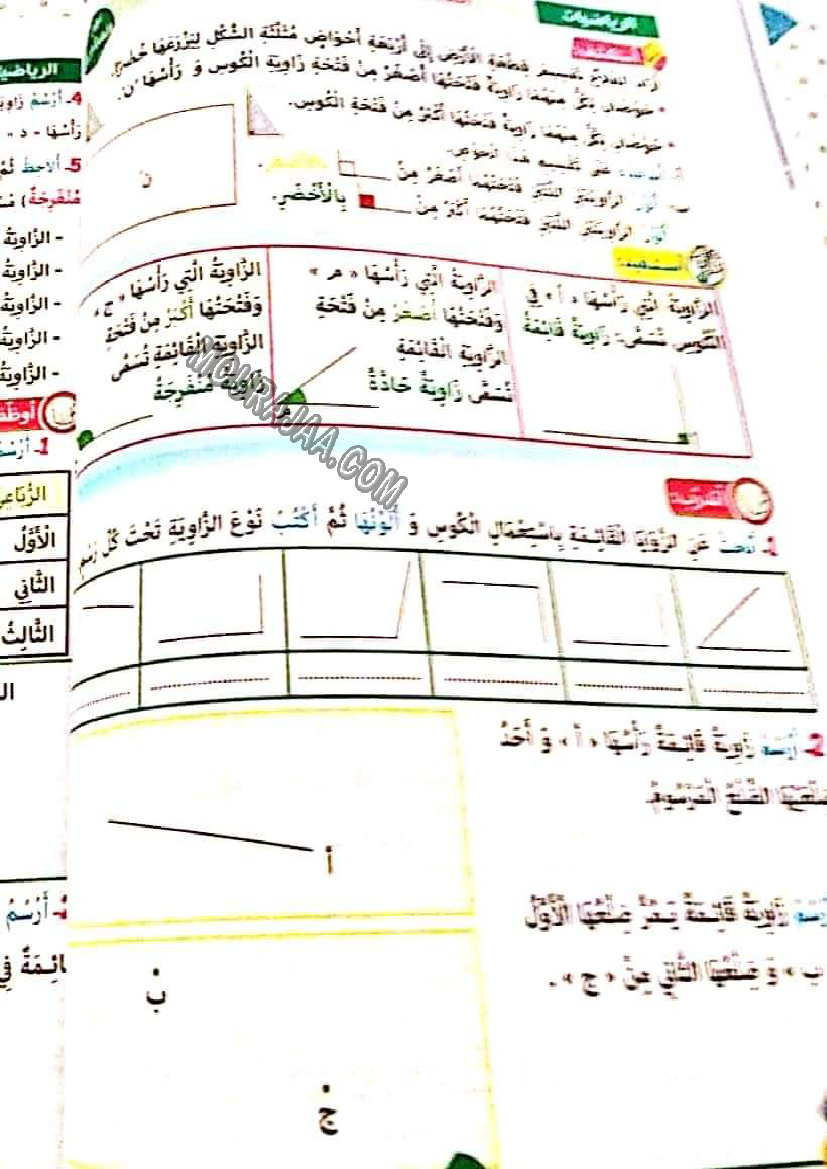 الرياضيات
أستكشف
أراد الفلاح تقسيم قطعة الأرض إلى أربعة أحواض مثلثة الشكل ليزرعها
حوضان بكل منهما زاوية فتحتها أصغر من فتحة زاوية الكوس و رأسها "ن".
حوضان بكل منهما زاوية فتحتها أكبر من فتحة الكوس.
ن
ب- ألون الزاويتين اللتين فتحتهما أصغر من بالأصفر.
ألون الزاويتين اللتين فتحتهما أكبر من بِالْأَخْضَرِ.
أستفيد
الزَّاوِيَةُ الَّتِي رَأْسُهَا « أ » فِي
الْكُوسِ تُسَمَّى زَاوِيَةً قَائِمَةً
الزَّاوِيَةُ الَّتِي رَأْسُهَا « م »
وَفَتْحَتُهَا أَصْغَرُ مِنْ فَتْحَةِ
الزَّاوِيَةِ الْقَائِمَةِ
تُسَمَّى زَاوِيَةً حَادَّةً
الزَّاوِيَةُ الَّتِي رَأْسُهَا « ج »
وَفَتْحَتُهَا أَكْبَرُ مِنْ فَتْحَةِ
الزَّاوِيَةِ الْقَائِمَةِ تُسَمَّى
زَاوِيَةً مُنْفَرِجَةً
MOURAJAA.COM
أتدرب
1- أَبْحَثُ عَنِ الزَّوَايَا الْقَائِمَةِ بِاسْتِعْمَالِ الْكُوسِ وَ أُلَوِّنُهَا ثُمَّ أَكْتُبُ نَوْعَ الزَّاوِيَةِ تَحْتَ كُلِّ رَسْمٍ
2- أَرْسُمُ زَاوِيَةً قَائِمَةً رَأْسُهَا « أ » وَ أَحَدُ
ضِلْعَيْهَا الضِّلْعُ الْمَرْسُومُ.
أ
أَرْسُمُ زَاوِيَةً قَائِمَةً يَمُرُّ ضِلْعُهَا الْأَوَّلُ
ب » وَ ضِلْعُهَا الثَّانِي مِنْ « ج ».
ب
ج
4- أَرْسُمُ
رَأْسُهَا « د »
5- أُلَاحِظُ
مُنْفَرِجَةٌ)
- الزَّاوِيَةُ
- الزَّاوِيَةُ
- الزَّاوِيَةُ
- الزَّاوِيَةُ
- الزَّاوِيَةُ
1- أَرْسُمُ
الْأَوَّلُ
الثَّانِي
الثَّالِثُ
أَرْسُمُ